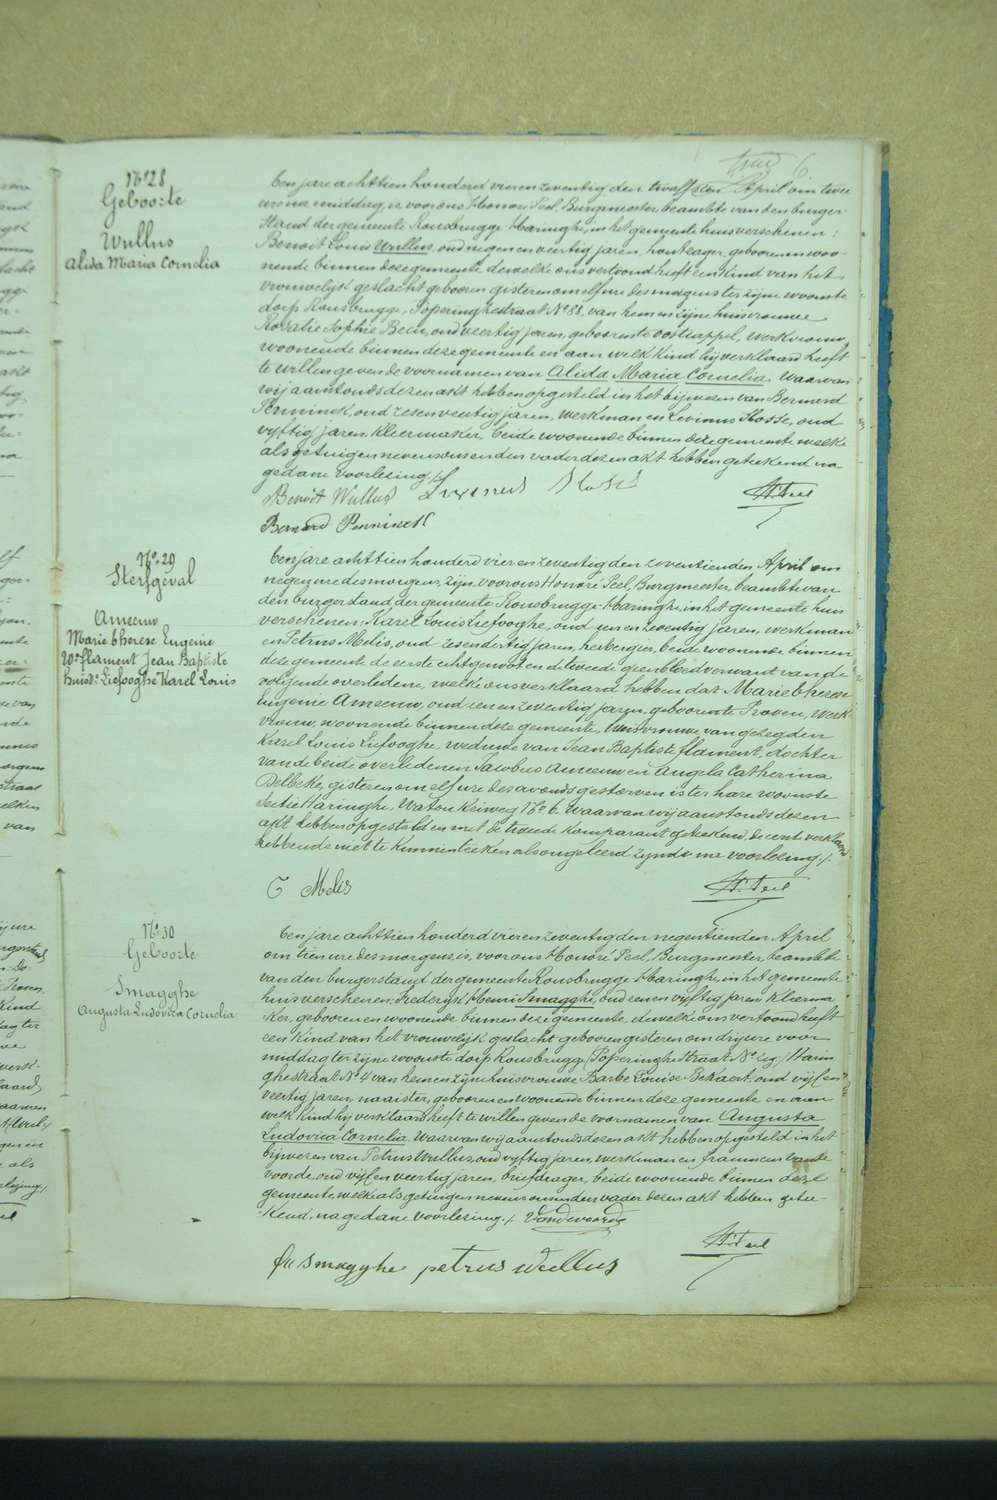 6.
N° 28
Geboorte
Wullus
Alida Maria Cornelia
Een jare achttien honderd vier en zeventig den twaalfsten April om twee
ure na middag, is voor ons Honoré Peel, Burgmeester beambte van den burger
stand der gemeente Rousbrugge Haringhe, in het gemeente huis verschenen:
Benoit Louis Wullus, oud negen en veertig jaren, houtzager, gebooren en woo-
nende binnen deze gemeente dewelke ons vertoond heeft een kind van het
vrouwelijk geslacht gebooren gisteren om elf ure des morgens ter zijne woonste
dorp Rousbrugge, Poperinghestraat N° 88, van hem en zijne huisvrouwe
Rosalie Sophie Becu, oud veertig jaren, geboren te oostcappel, werkvrouw,
woonende binnen deze gemeente en aan welk kind hij verklaard heeft
te willen geven de voornamen van Alida Maria Cornelia. Waarvan
wij aanstonds dezen akt hebben opgesteld in het bijwezen van Bernard
Penninck, oud zesenveertig jaren, werkman en Livinus Hosse, oud
vyftig jaren, kleermaker, beide woonende binnen deze gemeente welke
als getuigen nevens ons en den vader dezen akt hebben geteekend na
gedane voorlezing ./.
Benoit Wullus Livinus H. Peel
Bernard Penninck
N° 29
Sterfgeval
Ameeuw
Marie therese Eugenie
We flament Jean Baptiste
huisv: Liefooghe Karel Louis
Een jare achttien honderd vier en zeventig den zeventienden April om
negen ure des morgens, zijn voor ons Honoré Peel, Burgmeester, beambte van
den burgerstand der gemeente Rousbrugge-Haringhe, in het gemeente huis
verschenen: Karel Louis Liefooghe, oud een en zeventig jaren, werkman
en Petrus Melis, oud zesendertig jaren, herbergier, beide woonende binnen
deze gemeente de eerste echtgenoot en de tweede geen bloedverwant van de
volgende overledene, welke ons verklaard hebben dat Marie therese
Eugenie Ameeuw, oud een en zeventig jaren, geboren te Proven, werk
vrouw, woonende binnen deze gemeente, huisvrouwe van gezegden
Karel Louis Liefooghe, weduwe van Jean Baptiste flament, dochter
van de beide overledenen Jacobus Ameeuw en Angela Catherina
Delbeke, gisteren om elf ure des avonds gestorven is ter hare woonste
sectie Haringhe, Watou Keiweg N° 6. waarvan wij aanstonds dezen
akt hebben opgesteld en met de tweede komparant geteekend, de eerst verklaard
hebbende niet te kunnen teeken als ongeleerd zijnde na voorlezing ./.
Melis H. Peel
N° 30
Geboorte
Smagghe
Augusta Ludovica Cornelia
Een jare achttien honderd vier en zeventig den negentienden April
om tien ure des morgens, is, voor ons Honoré Peel, Burgmeester beambte
van den burgerstand der gemeente Rousbrugge Haringhe, in het gemeente
huis verschenen: Frederijk Henri Smagghe, oud een en vijftig jaren kleerma
ker, gebooren en woonende binnen deze gemeente, dewelke ons vertoond heeft
een kind van het vrouwelijk geslacht gebooren gisteren om drij ure voor
middag ter zijne woonste dorp Rousbrugge, Harin
ghestraat N° 4 van hem en zijne huisvrouwe Barbe Louise Bekaert, oud vijf en
veertig jaren, naaister, gebooren en woonende binnen deze gemeente en aan
welk kind hij verklaard heeft te willen geven de voornamen van Augusta
Ludovica Cornelia. Waarvan wij aanstonds dezen akt hebben opgesteld in het
bijwezen van Petrus Wullus, oud vyftig jaren, werkman en franciscus Vande
voorde, oud vijf en veertig jaren, briefdrager, beide woonende binnen deze
gemeente, welke als getuigen nevens ons en den vader dezen akt hebben getee-
kend, na gedane voorlezing ./. Vandevoorde
H. Peel
fr smagghe petrus wullus